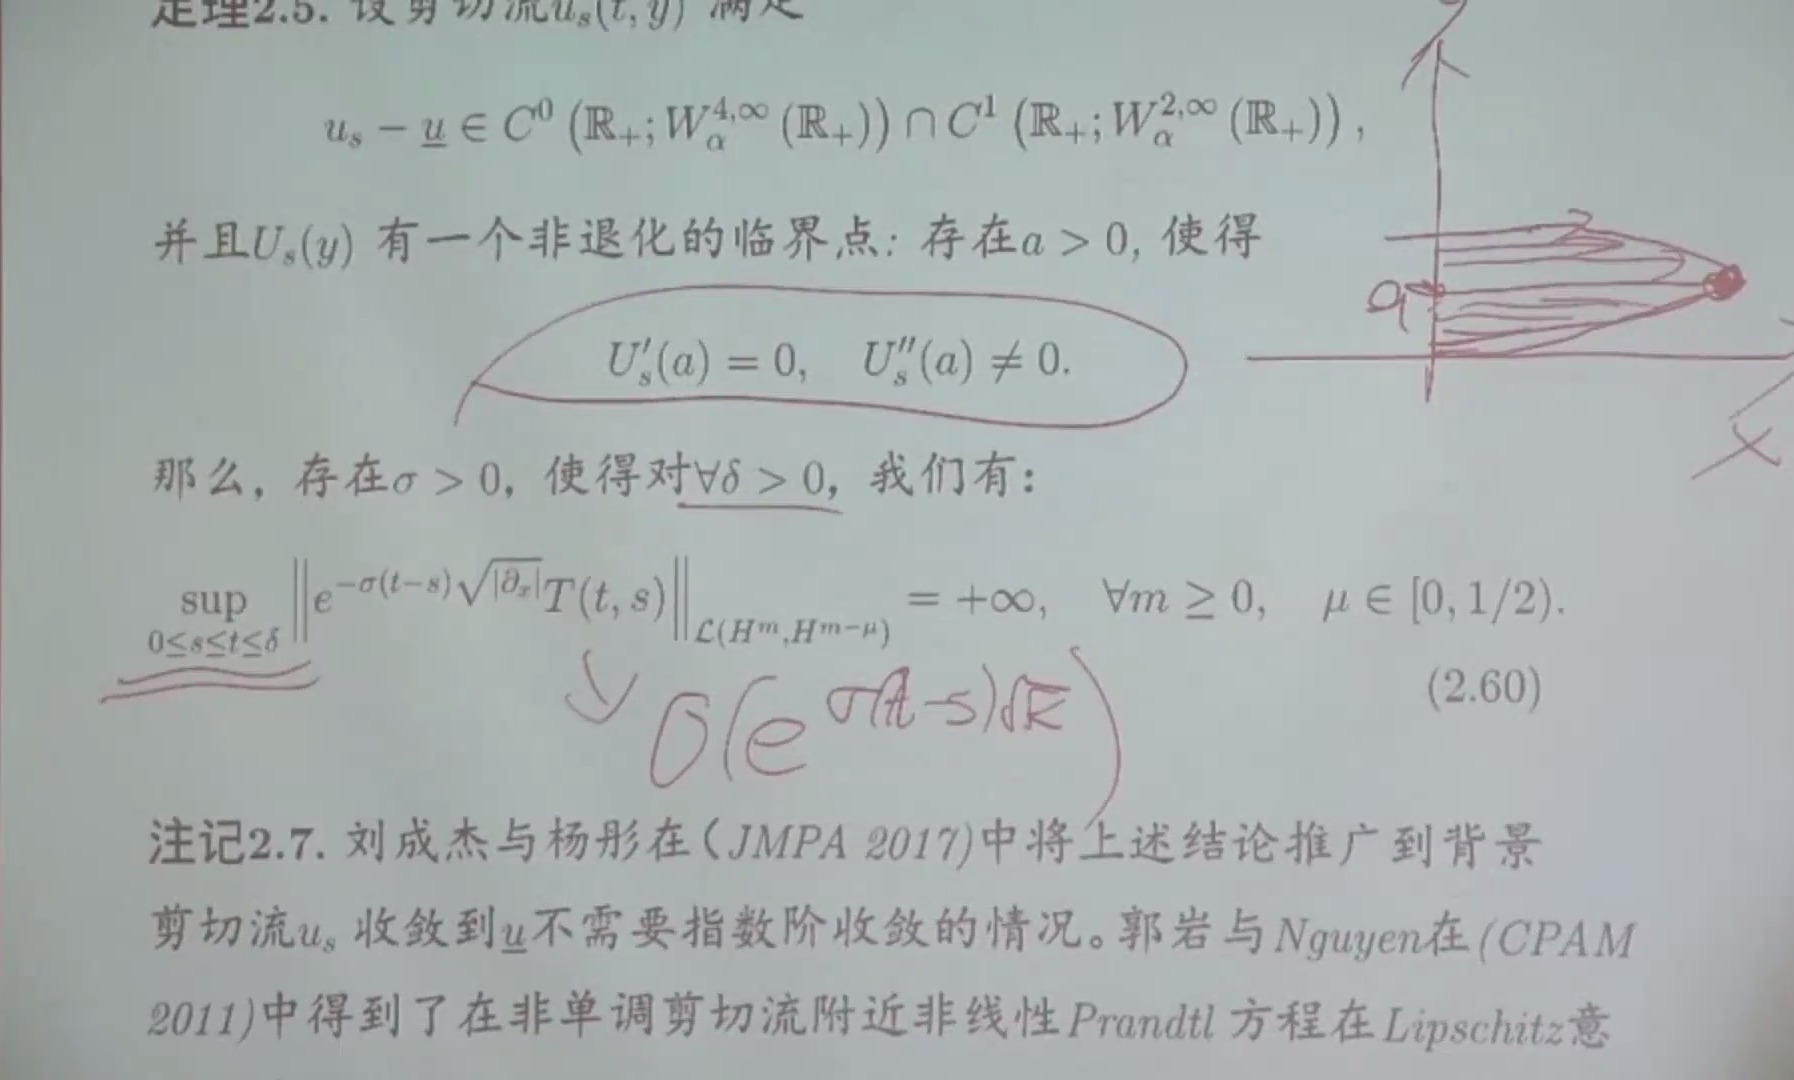 定理2.5. 设剪切流u_s(t, y) 满足
u_s − \underline{u} ∈ C^0 (ℝ_+; W_α^{4,∞} (ℝ_+)) ∩ C^1 (ℝ_+; W_α^{2,∞} (ℝ_+)) ,
并且U_s(y) 有一个非退化的临界点: 存在a > 0, 使得
a
U_s′(a) = 0, U_s″(a) ≠ 0.
X
那么, 存在σ > 0, 使得对∀δ > 0, 我们有:
sup_{0≤s≤t≤δ} ‖e^{−σ(t−s)√|∂_x|} T(t, s)‖_{ℒ(H^m,H^{m−μ})} = +∞, ∀m ≥ 0, μ ∈ [0, 1/2).
(2.60)
O(e^{σ(t−s)√k})
注记2.7. 刘成杰与杨彤在(JMPA 2017)中将上述结论推广到背景
剪切流u_s 收敛到\underline{u}不需要指数阶收敛的情况。郭岩与Nguyen在(CPAM
2011)中得到了在非单调剪切流附近非线性Prandtl 方程在Lipschitz意